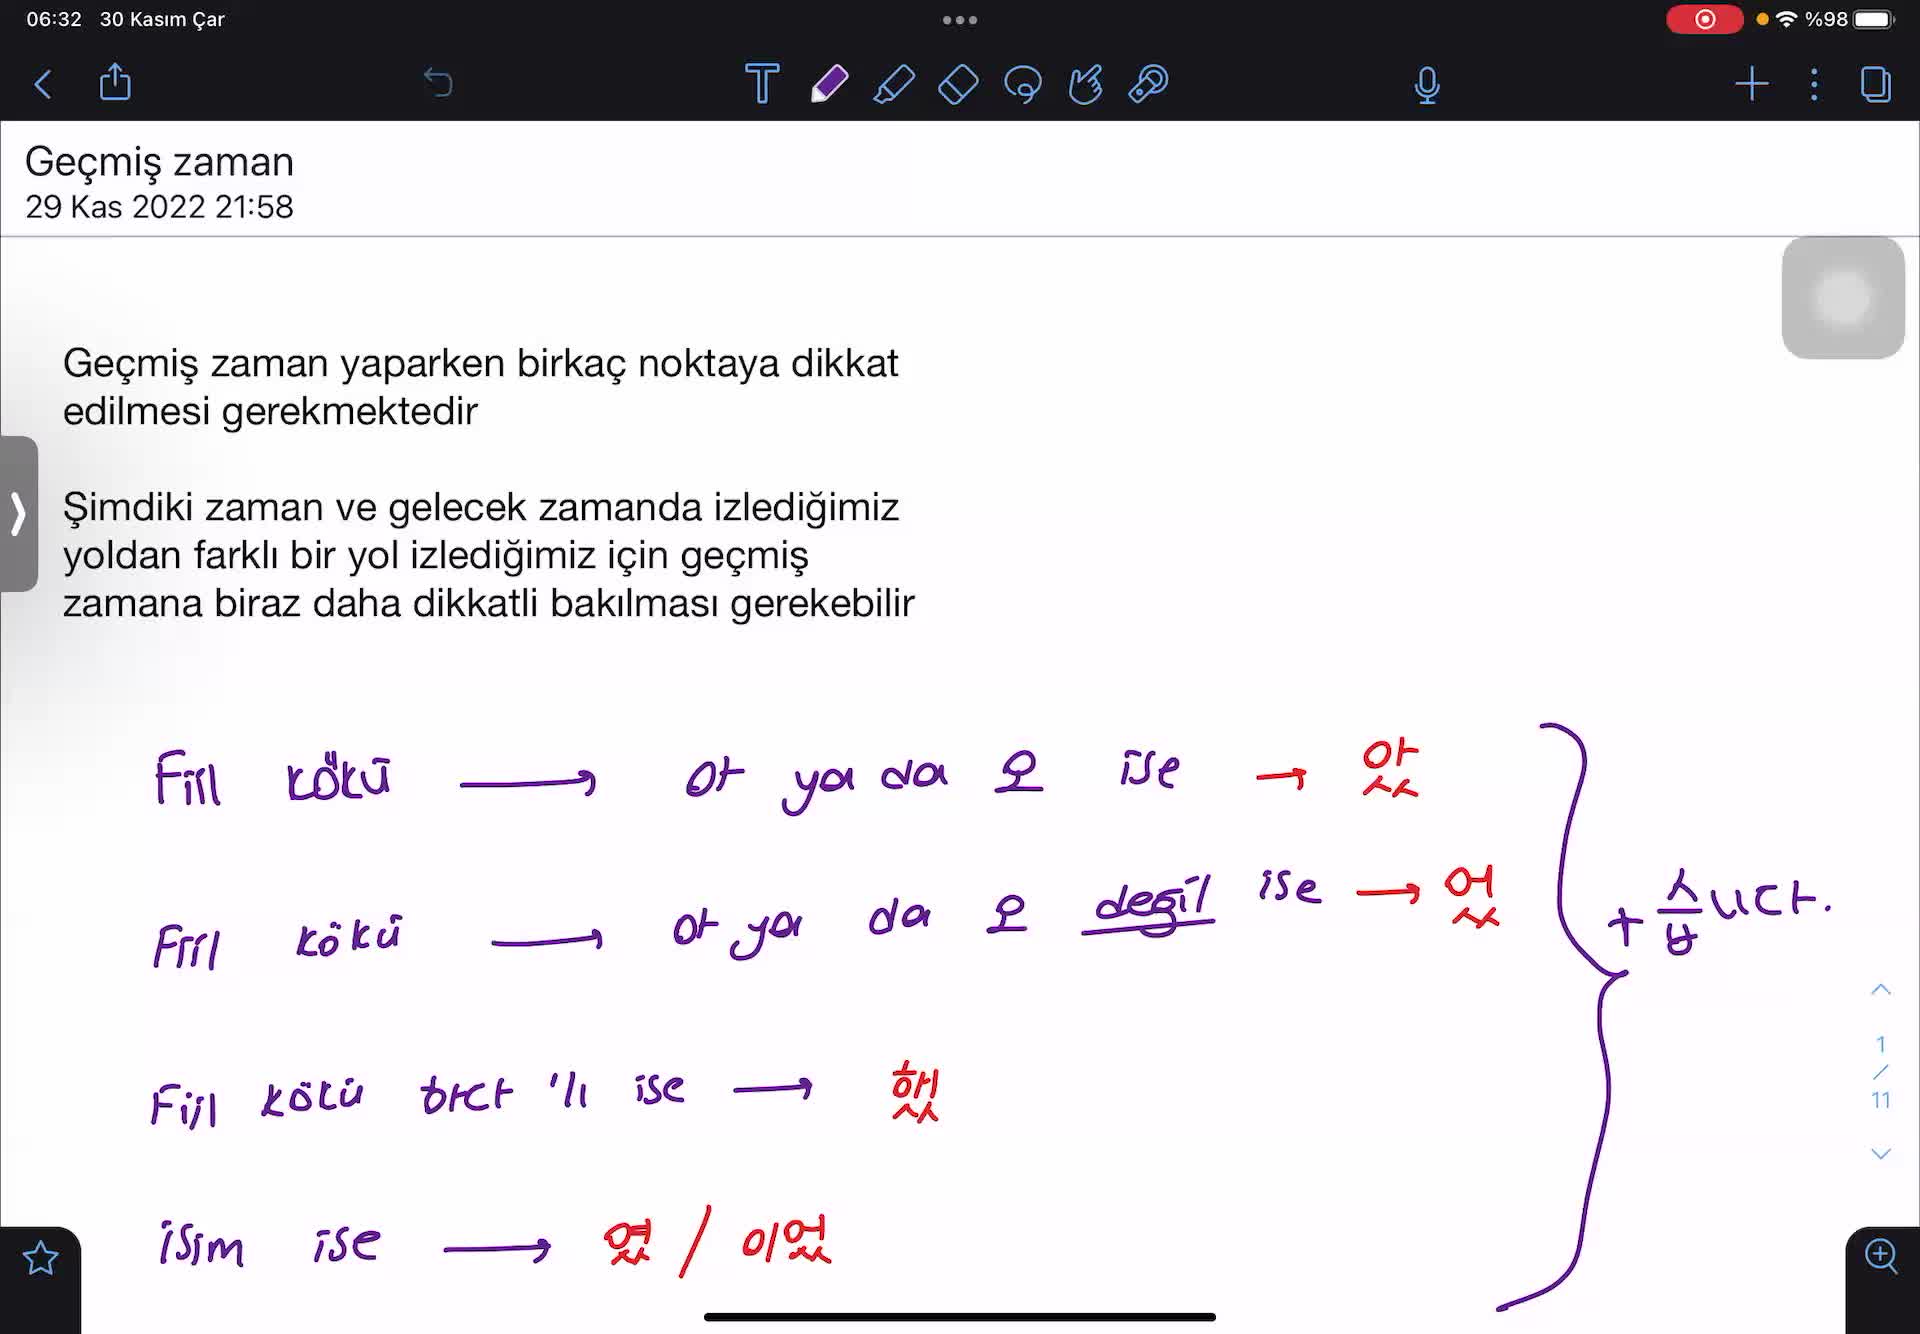 06:32 30 Kasım Çar
%98
Geçmiş zaman
29 Kas 2022 21:58
Geçmiş zaman yaparken birkaç noktaya dikkat
edilmesi gerekmektedir
Şimdiki zaman ve gelecek zamanda izlediğimiz
yoldan farklı bir yol izlediğimiz için geçmiş
zamana biraz daha dikkatli bakılması gerekebilir
Fiil kökü → 아 ya da 오 ise → 았
Fiil kökü → 아 ya da 오 değil ise → 었
+ 습니다.
Fiil kökü 하다 'lı ise → 했
isim ise → 였 / 이었
1
/
11